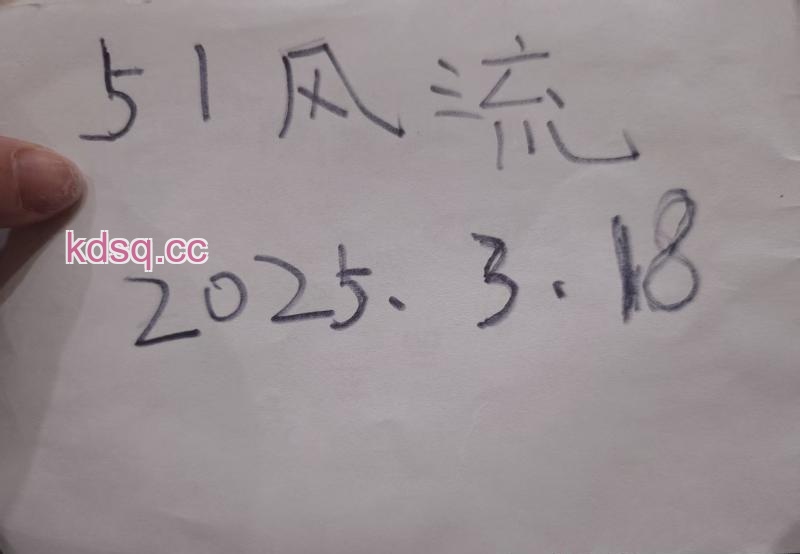 51风流
kdsq.cc
2025.3.18